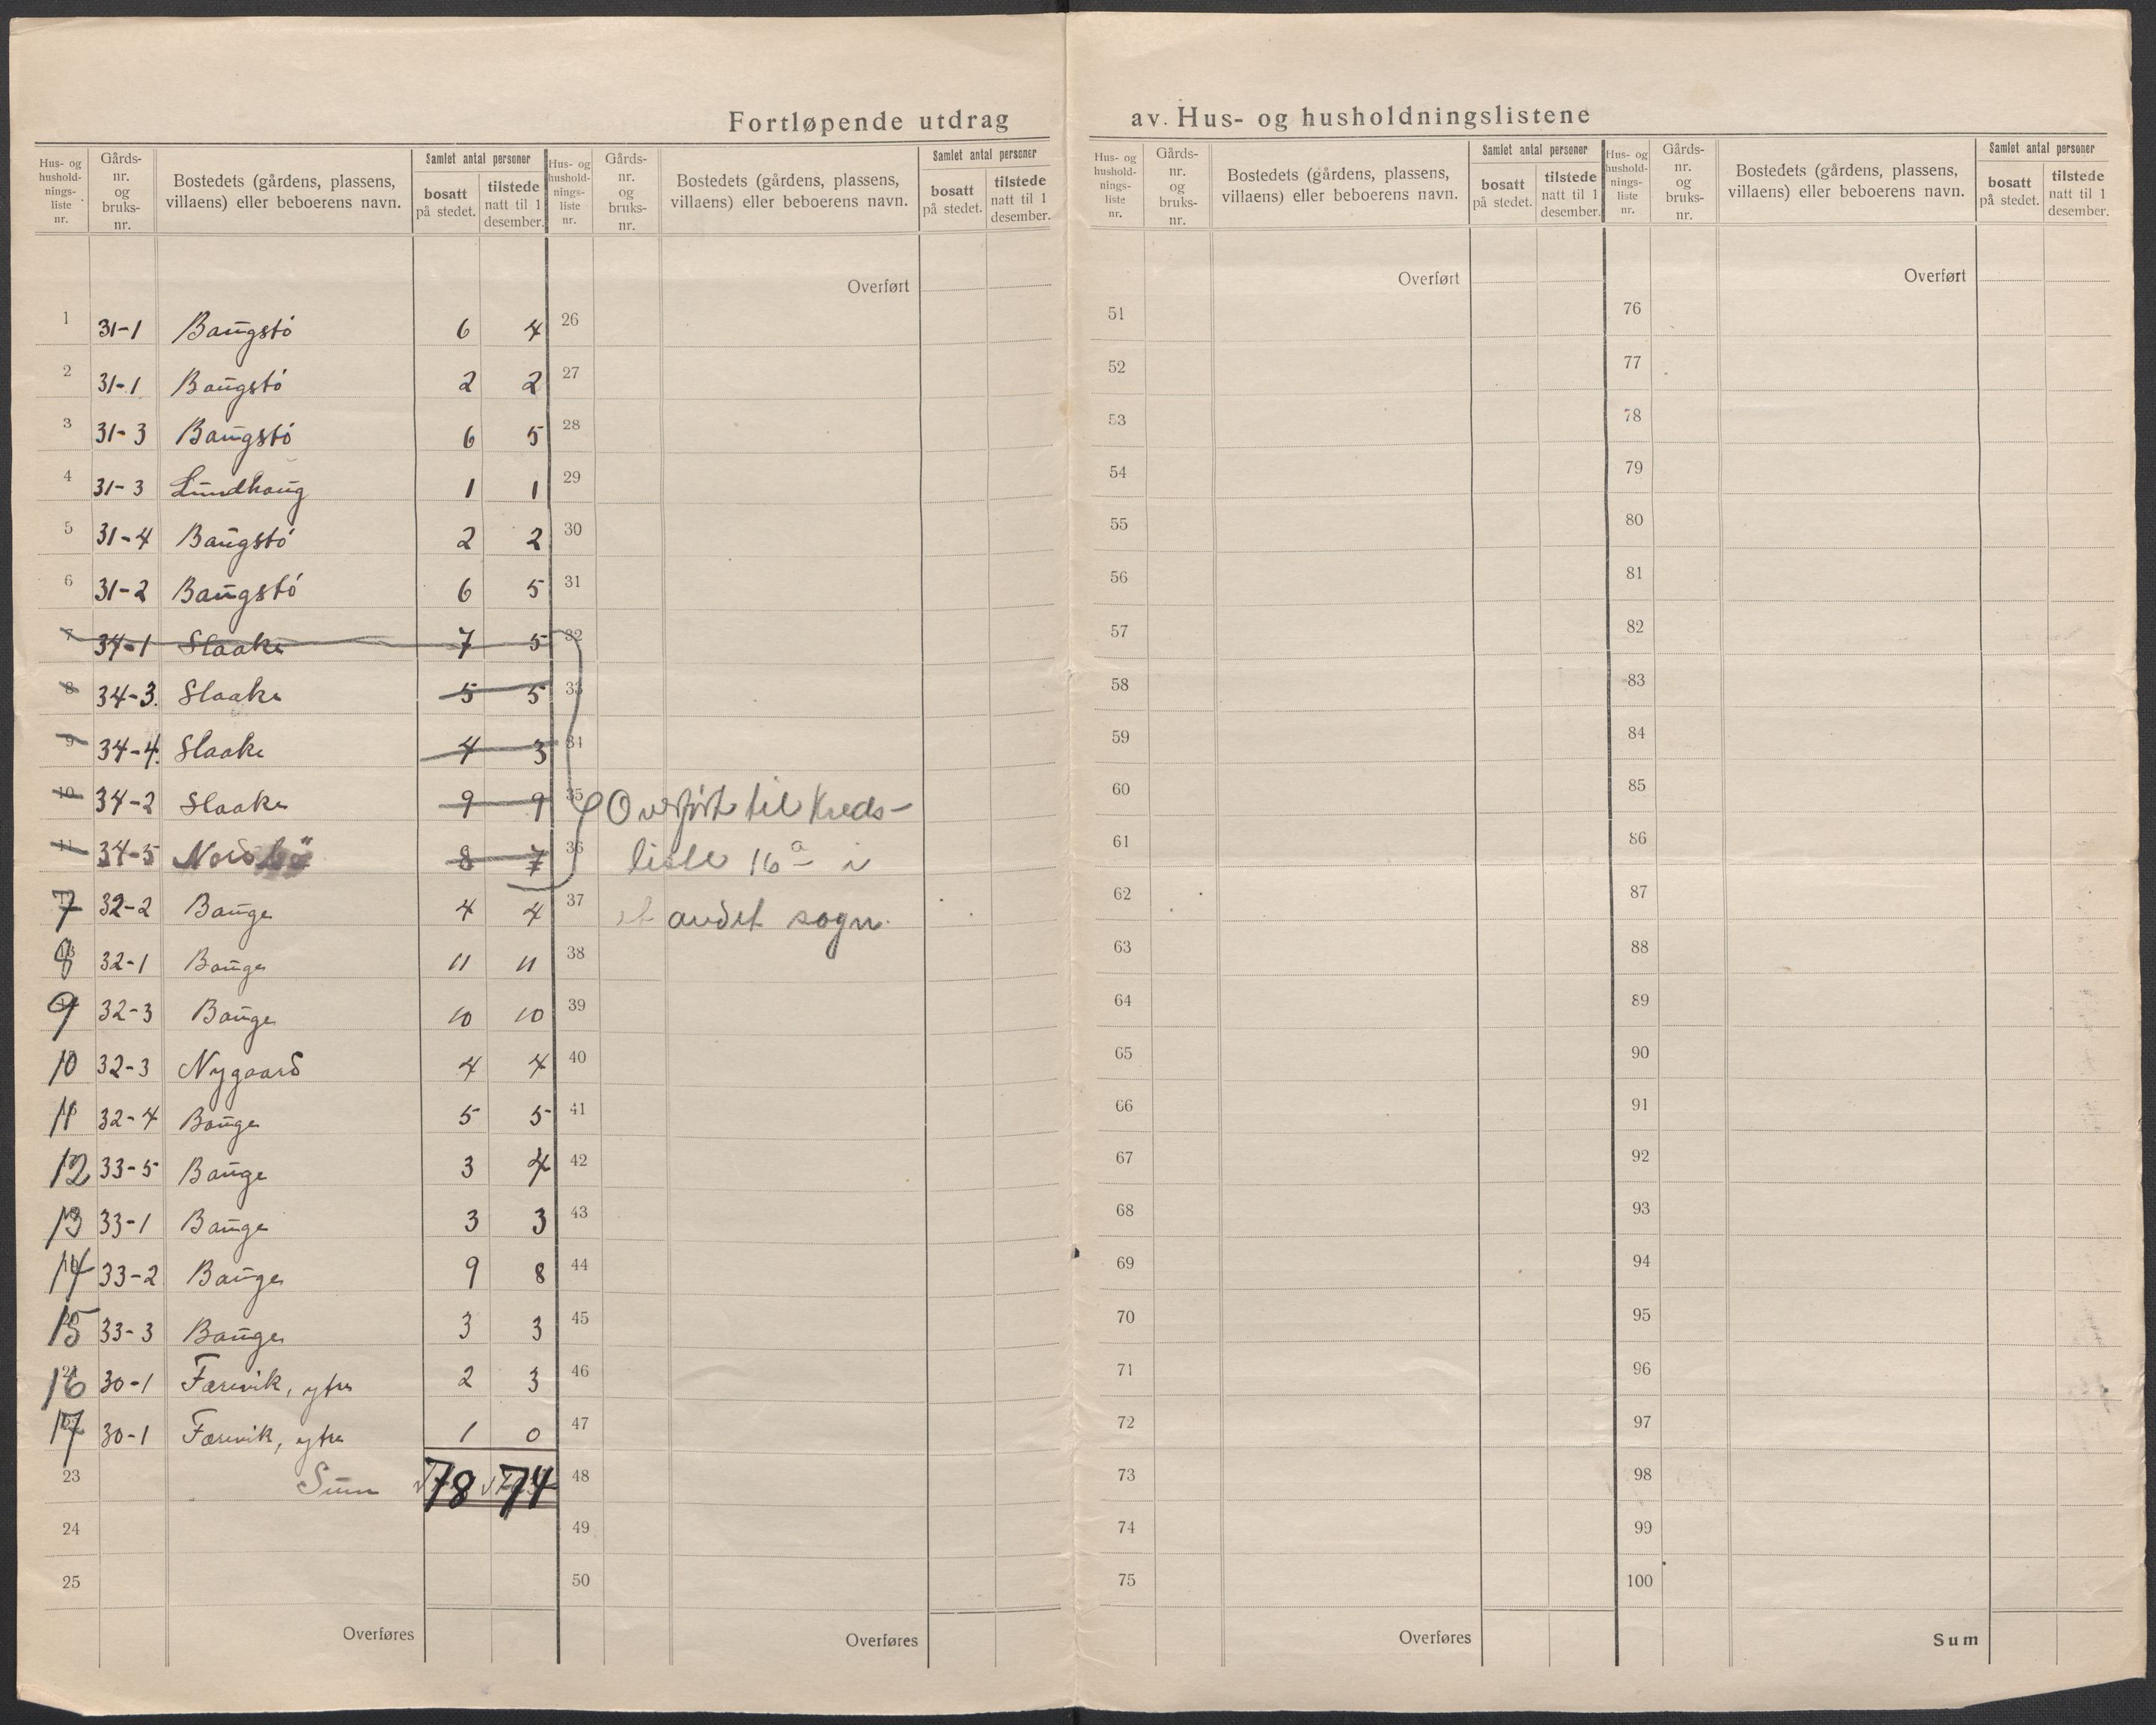 Fortløpende utdrag av Hus- og husholdningslistene
Hus- og husholdnings-liste nr. | Gårds-nr. og bruks-nr. | Bostedets (gårdens, plassens, villaens) eller beboerens navn. | Samlet antal personer | bosatt på stedet. | tilstede natt til 1 desember.
1 31-1 Baugstö 6 4
2 31-1 Baugstö 2 2
3 31-3 Baugstö 6 5
4 31-3 Lundhaug 1 1
5 31-4 Baugstö 2 2
6 31-2 Baugstö 6 5
7 34-1 Slaake 7 5
8 34-3. Slaake 5 5
9 34-4. Slaake 4 3
10 34-2 Slaake 9 9
11 34-5 8 7
7 32-2 Bauge 4 4
8 32-1 Bauge 11 11
9 32-3 Bauge 10 10
10 32-3 Nygaard 4 4
11 32-4 Bauge 5 5
12 33-5 Bauge 3 4
13 33-1 Bauge 3 3
14 33-2 Bauge 9 8
15 33-3 Bauge 3 3
16 30-1 Færevik, ytre 2 3
17 30-1 Færevik, ytre 1 0
23 Sum 78 74
24
25
Overføres
Hus- og husholdnings-liste nr. | Gårds-nr. og bruks-nr. | Bostedets (gårdens, plassens, villaens) eller beboerens navn. | Samlet antal personer | bosatt på stedet. | tilstede natt til 1 desember.
Overført
26
27
28
29
30
31
32
33
34
35 Overført til Kreds-
36 liste 16a i
37 et andet sogn.
38
39
40
41
42
43
44
45
46
47
48
49
50
Overføres
Hus- og husholdnings-liste nr. | Gårds-nr. og bruks-nr. | Bostedets (gårdens, plassens, villaens) eller beboerens navn. | Samlet antal personer | bosatt på stedet. | tilstede natt til 1 desember.
Overført
51
52
53
54
55
56
57
58
59
60
61
62
63
64
65
66
67
68
69
70
71
72
73
74
75
Overføres
Hus- og husholdnings-liste nr. | Gårds-nr. og bruks-nr. | Bostedets (gårdens, plassens, villaens) eller beboerens navn. | Samlet antal personer | bosatt på stedet. | tilstede natt til 1 desember.
Overført
76
77
78
79
80
81
82
83
84
85
86
87
88
89
90
91
92
93
94
95
96
97
98
99
100
Sum